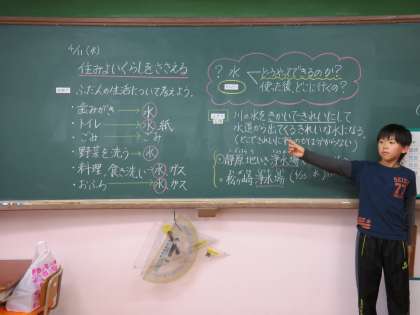 4/11(水)
住みよいくらしをささえる
ふだんの生活について考えよう。
・歯みがき→水
・トイレ→水 紙
・ごみ
・野菜を洗う→水
・料理、食き洗い→水 ガス
・おふろ→水 ガス
? 水
どうやってできるのか?
使った後、どこに行くの?
川の水をきかいできれいにして
水道から出てくるきれいな水になる。
静原地いき浄水場
松ヶ崎浄水場